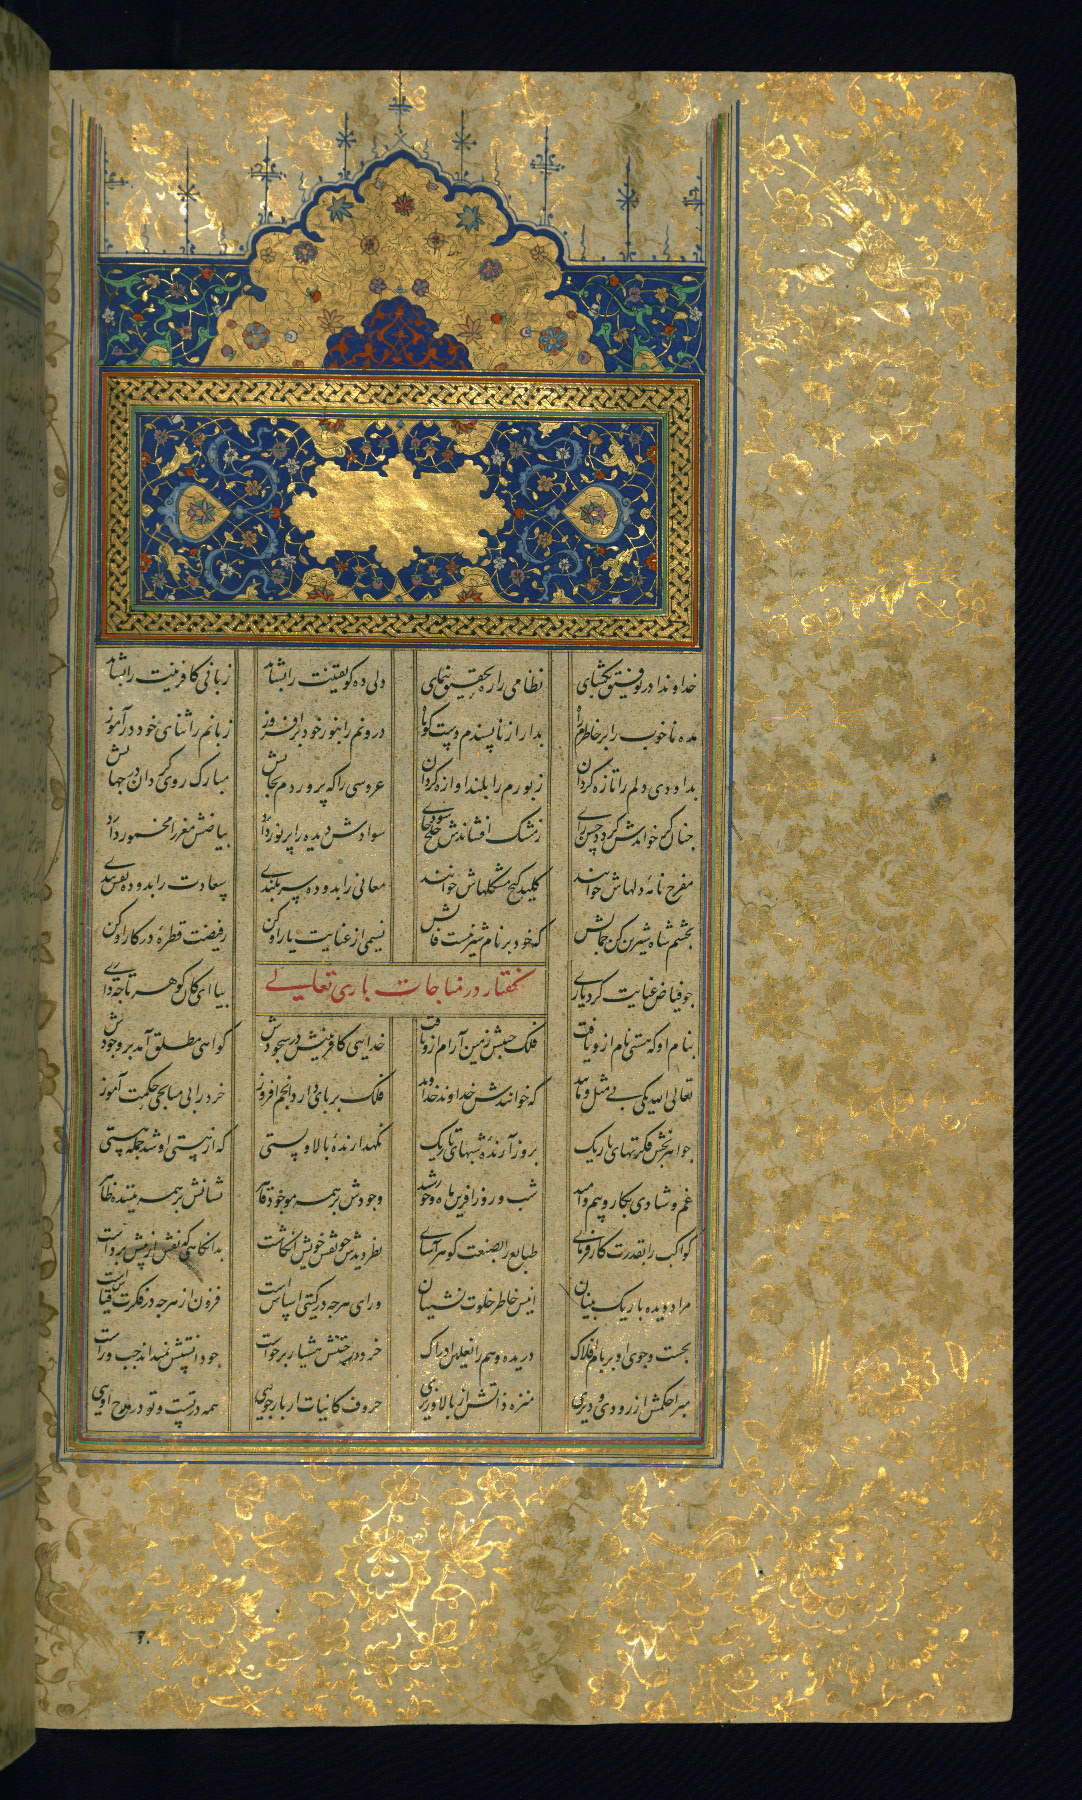 خداوندا در توفیق بکشای نظامی را ره تحقیق بنمای دلی ده کو یقینت را بشاید زبانی کافرینت را بشاید
مده ناخوب را بر خاطرم راه بدار از ناپسندم دست کوتاه درونم را بنور خود برافروز زبانم را ثنای خود در آموز
بداودی دلم را تازه کردان زبورم را بلند اوازه کردان عروسی را که پروردم بجانش مبارک روی کردان در جهانش
چنان کز خواندنش کردد رای ز مشک افشاندنش خلخ جای سوادش دیده را پر نور دارد بیاضش مغز را مخمور دارد
مفرح نامهٔ دلهاش خوانند کلید کنج مشکلهاش خوانند معانی را بدو ده سربلندی سعادت را بدو ده
بچشم شاه شیرین کن جمالش که خود بر نام شیرینست فالش نسیمی از عنایت یار او کن ز فیضت قطرهٔ در کار او کن
چو فیاض عنایت کرد یاری بیا ای کان کوهر تا چه داری
کفتار در مناجات باری تعالی
بنام او که هستی نام ازو یافت فلک جنبش زمین آرام ازو یافت خدایی کافرینش در سجودش کواهی مطلق آمد بر وجودش
تعالی الله یکی بی مثل و مانند که خوانندش خداوندان خداوند فلک بر پای دار و انجم افروز خرد را بی میانجی حکمت آموز
جواهر بخش فکرتهای باریک بروز آرندهٔ شبهای تاریک نکهدارندهٔ بالا و پستی که از هستی او شد جمله هستی
غم و شادی نکار و بیم و امید شب و روز افرین و ماه و خورشید وجودش بر همه موجود قاهر نشانش بر همه بیننده ظاهر
کواکب را بقدرت کارفرمای طبایع را بصنعت کوهرآرای
مراد دیده باریک بینان انیس خاطر خلوت نشینان ورای هرچه در کیتی اساس است فزون از هرچه در فکرت قیاس است
بجست و جوی او بر بام افلاک دریده وهم را نعلین ادراک خرد در جستنش هشیار برخاست چو دانستش نمیداند چپ و راست
مبرا حکمش از زودی و دیری منزه ذاتش از بالا و زیری حروف کاینات ار باز جویی همه در تست و تو در لوح اویی